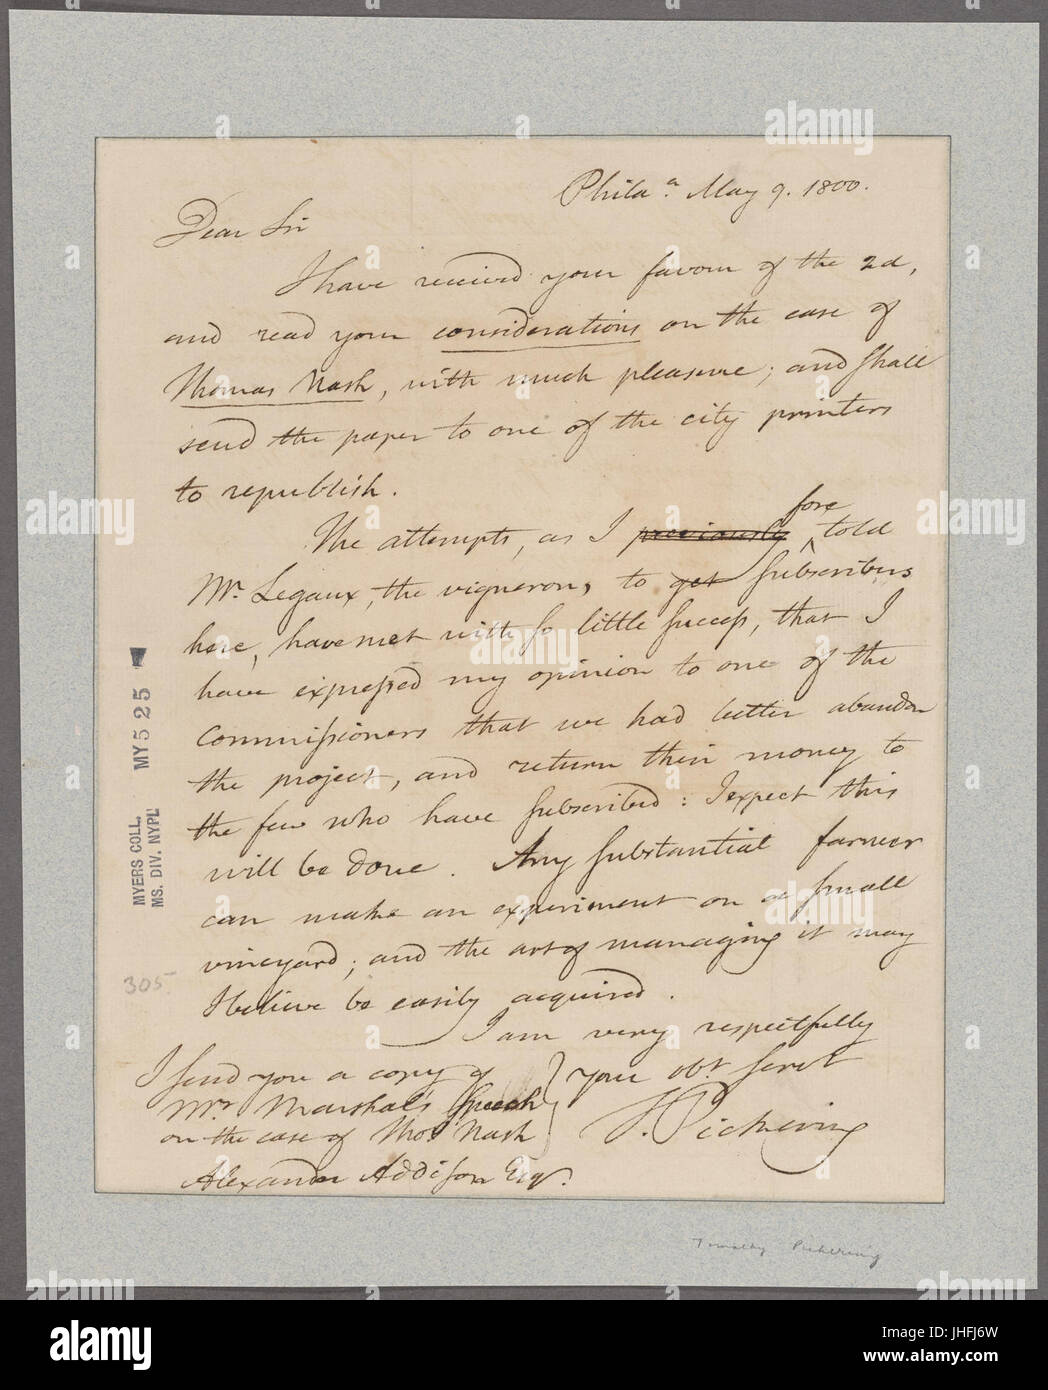 Philaᵃ May 9. 1800.
Dear Sir
I have received your favour of the 2d,
and read your considerations on the case of
Thomas Nash, with much pleasure; and shall
send the paper to one of the city printers
to republish.
fore
The attempts, as I previously told
Mr. Legaux, the vigneron, to get subscribers
here, have met with so little success, that I
have expressed my opinion to one of the
Commissioners that we had better abandon
the project, and return their money to
the few who have subscribed: I expect this
will be done. Any substantial farmer
can make an experiment on a small
vineyard; and the art of managing it may
I believe be easily acquired.
I am very respectfully
your obt. servt
T. Pickering
I send you a copy of
Mr. Marshal's Speech
on the case of Thos. Nash
Alexander Addison Esqr.
MYERS COLL.
MS. DIV. NYPL
MY 5 25
305
Timothy Pickering
alamy
alamy
Image ID: JHFJ6W
www.alamy.com